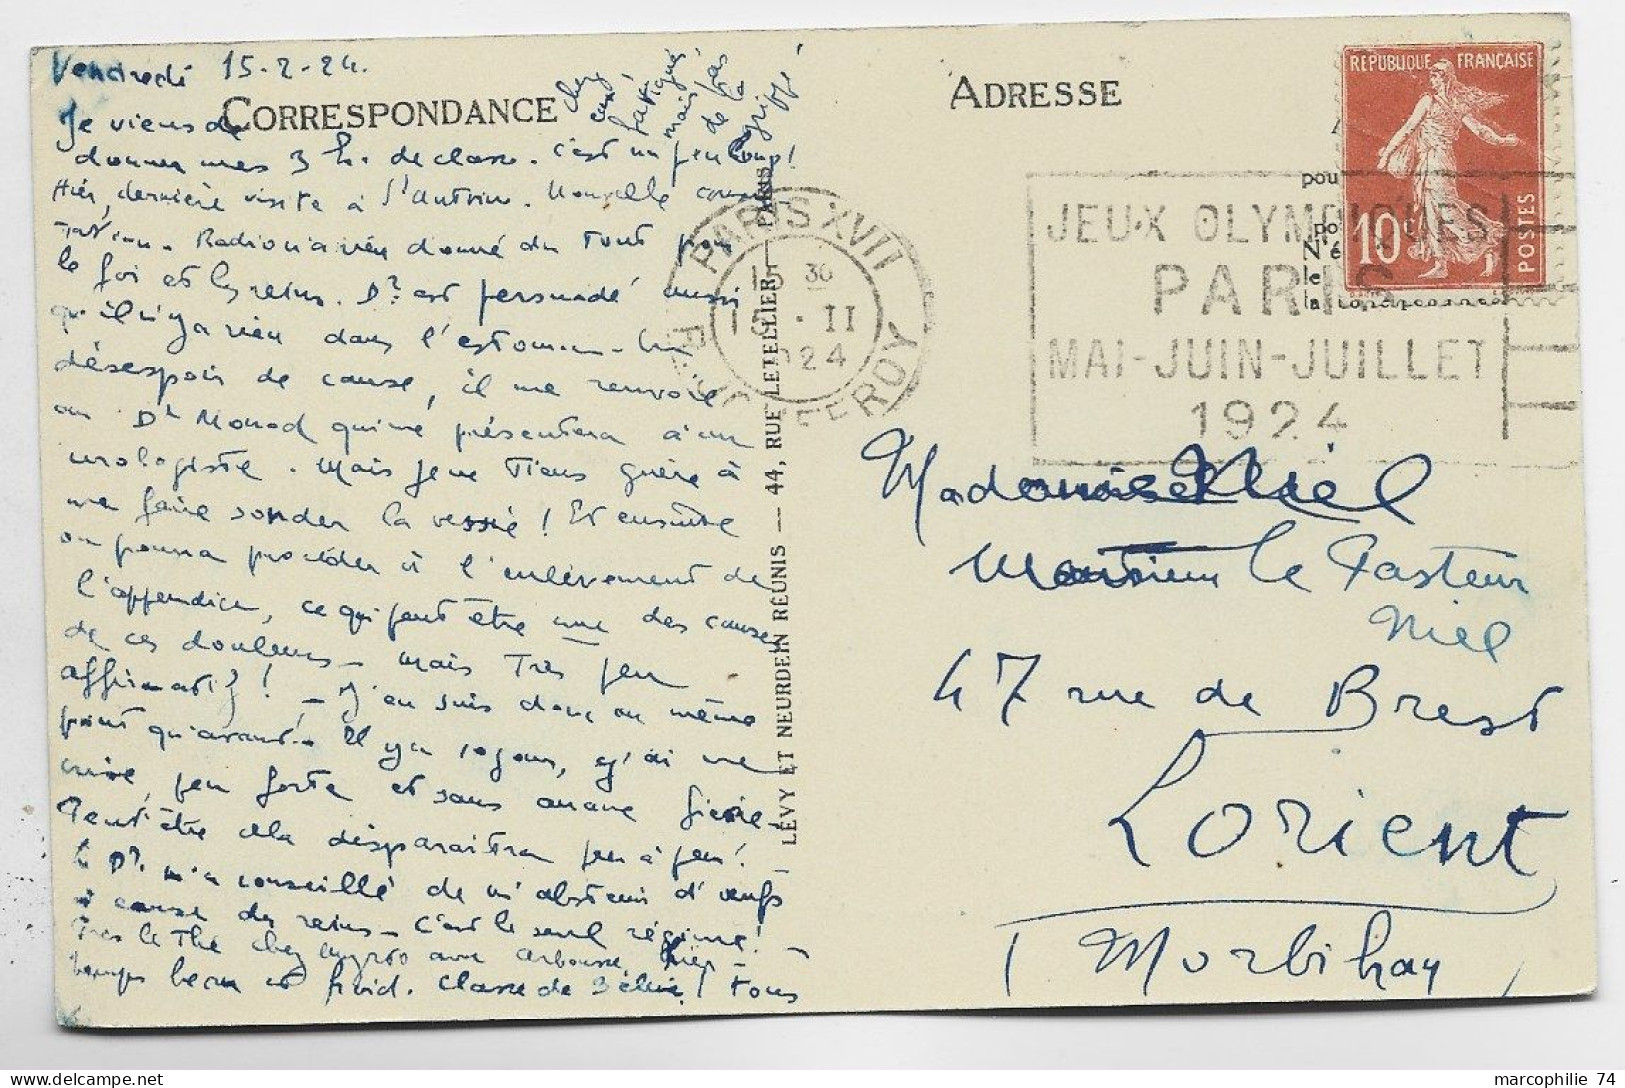 Vendredi 15-2-24.
CORRESPONDANCE
Je viens de
donner mes 3 h. de classe. C'est un peu long!
Hier, dernière visite à
Nouvelle
Radio n'a rien donné du tout pour
le foie et les reins. Dr est persuadé aussi
qu'il n'y a rien dans l'estomac. En
désespoir de cause, il me renvoie
au Dr Monod qui me présentera à un
urologiste. Mais je ne tiens guère à
me faire sonder la vessie! Et ensuite
on pourra procéder à l'enlèvement de
l'appendice, ce qui peut être une des causes
de ces douleurs - mais très peu
affirmatif! - J'en suis donc au même
point qu'avant. Il y a 10 jours, j'ai eu une
crise, peu forte et sans aucune fièvre -
Peut être cela disparaitra peu à peu!
Le Dr. m'a conseillé de m'abstenir d'œufs
à cause des reins - C'est le seul régime! -
Pris le thé chez avec hier -
temps beau et froid. Classe de 3 élèves! Tous
chez
eux,
fatigués
mais pas
de la
grippe
LÉVY ET NEURDEIN RÉUNIS — 44, RUE LETELLIER, PARIS
ADRESSE
RÉPUBLIQUE FRANÇAISE
10c
POSTES
pou
po
N'é
le
la correspondance
PARIS XVII
30
·II
924
JEUX OLYMPIQUES
PARIS
MAI-JUIN-JUILLET
1924
Mademoiselle Niel
Monsieur le Pasteur
Niel
47 rue de Brest
Lorient
(Morbihan)
marcophilie 74